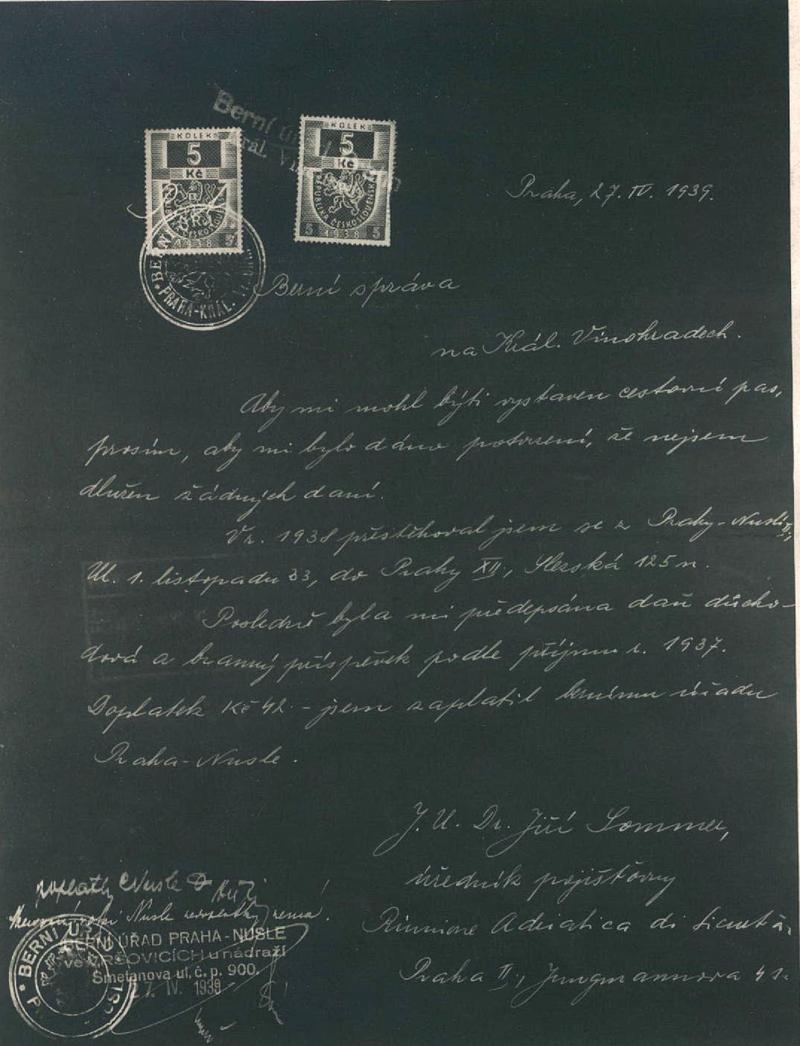 Berní
KOLEK
5
Kč
1938
5
KOLEK
5
Kč
REPUBLIKA ČESKOSLOVENSKÁ
5 1938 5
Praha, 27. IV. 1939.
PRAHA-KRÁL.
Berní správa
na Král. Vinohradech.
Aby mi mohl býti vystaven cestovní pas,
prosím, aby mi bylo dáno potvrzení, že nejsem
dlužen žádných daní.
V r. 1938 přestěhoval jsem se z Prahy-Nuslí
Ul. 1. listopadu 23, do Prahy XII., Slezská 125 n.
Posledně byla mi předepsána daň důcho-
dová a branný příspěvek podle příjmu r. 1937.
Doplatek Kč 42.- jsem zaplatil bernímu úřadu
Praha-Nusle.
J. U. Dr. Jiří Sommer,
úředník pojišťovny
Riunione Adriatica di Sicurtà
Praha II., Jungmannova 41.
Nusle
Nusle nedoplatky nemá.
BERNÍ ÚŘAD
BERNÍ ÚŘAD PRAHA-NUSLE
ve VRŠOVICÍCH u nádraží
Smetanova ul. č. p. 900.
27. IV. 1939